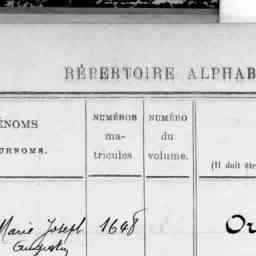 RÉPERTOIRE ALPHAB
ÉNOMS
URNOMS.
NUMÉROS
ma-
tricules.
NUMÉRO
du
volume.
(Il doit êtr
Marie Joseph
Augustin
1648
Ou